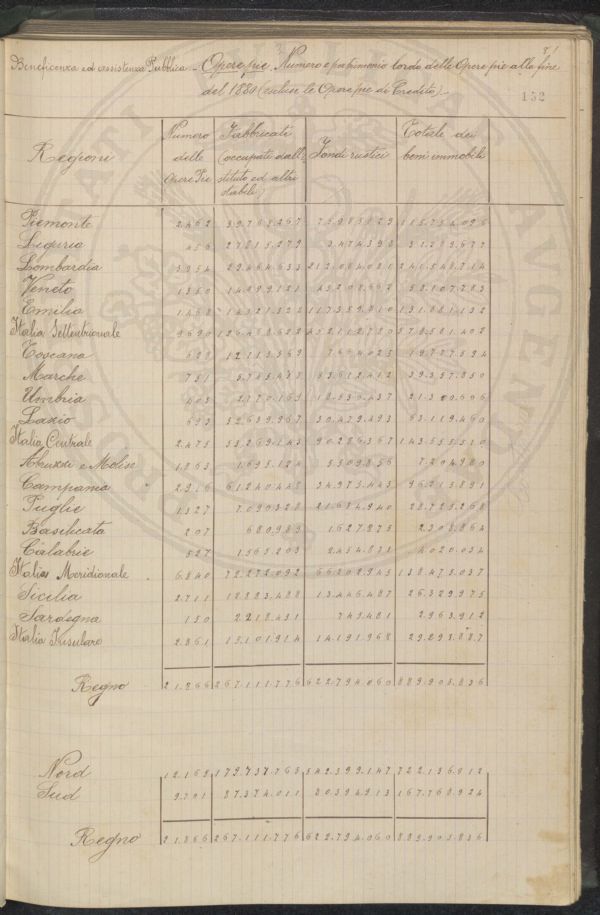 81
Beneficenza ed assistenza Pubblica - Opere pie. Numero e patrimonio lordo delle Opere pie alla fine
del 1880 (escluse le Opere pie di Credito).
132
Regioni | Numero delle Opere Pie | Fabbricati (occupati dall' stituto ed altri stabili) | Fondi rustici | Totale dei beni immobili
Piemonte 2.462 39.768.267 75.985.829 115.754.096
Liguria 456 27.815.279 3.474.398 31.289.677
Lombardia 29.464.633 212.084.081 241.548.714
Veneto
Emilia 117.359.810 131.681.132
Italia Settentrionale 9.690 126.468.623
Toscana 12.113.569 19.777.594
Marche 751 5.745.438 33.612.412 39.357.850
Umbria
Lazio 693 32.639.967 30.479.493 63.119.460
Italia Centrale 2.475 53.269.143 90.286.367 143.555.510
Abruzzi e Molise 1.695.124 5.509.856 7.204.980
Campania 61.240.448 34.975.443 96.215.891
Puglie 1.327 7.090.328 21.634.940 28.725.268
Basilicata 207 680.989 1.627.875 2.308.864
Calabrie 527 1.565.203 2.454.831 4.020.034
Italia Meridionale 6.840 72.272.092 66.202.945 138.475.037
Sicilia 2.711 12.883.488 13.446.487 26.329.975
Sardegna 150 2.218.431 745.481 2.963.912
Italia Insulare 2.861 15.101.914 14.191.968 29.293.887
Regno 21.866 267.111.776 622.794.060 889.905.836
Nord 12.165 179.737.765 542.399.147 722.136.912
Sud 9.701 87.374.011 80.394.913 167.768.924
Regno 21.866 267.111.776 622.794.060 889.905.836